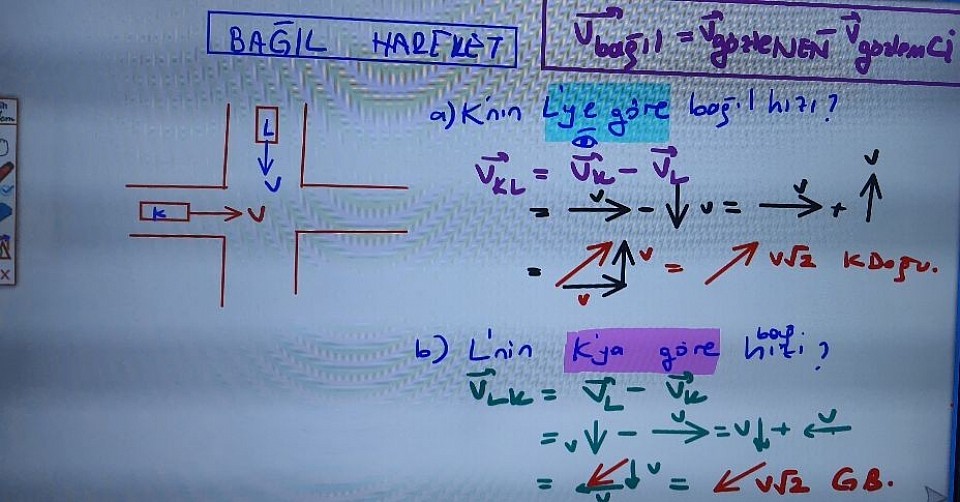 BAĞIL HAREKET
V⃗bağıl = V⃗gözleNEN - V⃗gözlemCi
a) K'nın L'ye göre bağıl hızı?
V⃗KL = V⃗K - V⃗L
= v → - ↓ v = → v + ↑ v
= v v = ↗ v√2 KDoğu.
L
V
K → V
b) L'nin K'ya göre bağ. hızı?
V⃗LK = V⃗L - V⃗K
= v ↓ - → v = v ↓ + ← v
= v v = ↙ v√2 GB.